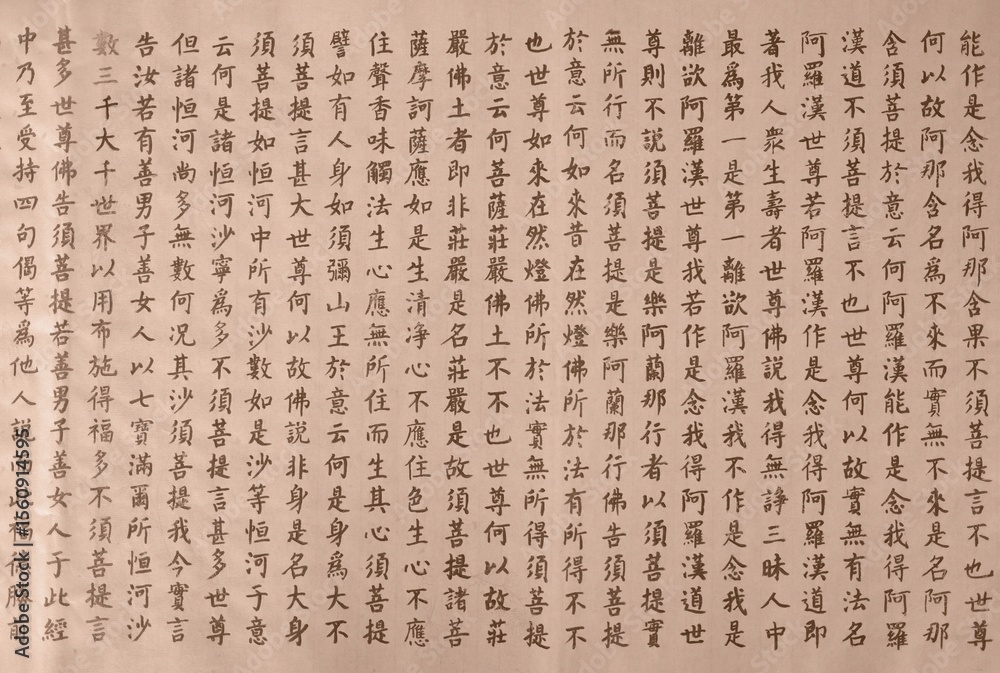 能作是念我得阿那含果不須菩提言不也世尊
何以故阿那含名爲不來而實無不來是名阿那
含須菩提於意云何阿羅漢能作是念我得阿羅
漢道不須菩提言不也世尊何以故實無有法名
阿羅漢世尊若阿羅漢作是念我得阿羅漢道即
著我人衆生壽者世尊佛說我得無諍三昧人中
最爲第一是第一離欲阿羅漢我不作是念我是
離欲阿羅漢世尊我若作是念我得阿羅漢道世
尊則不說須菩提是樂阿蘭那行者以須菩提實
無所行而名須菩提是樂阿蘭那行佛告須菩提
於意云何如來昔在然燈佛所於法有所得不不
也世尊如來在然燈佛所於法實無所得須菩提
於意云何菩薩莊嚴佛土不不也世尊何以故莊
嚴佛土者即非莊嚴是名莊嚴是故須菩提諸菩
薩摩訶薩應如是生清净心不應住色生心不應
住聲香味觸法生心應無所住而生其心須菩提
譬如有人身如須彌山王於意云何是身爲大不
須菩提言甚大世尊何以故佛說非身是名大身
須菩提如恒河中所有沙數如是沙等恒河于意
云何是諸恒河沙寧爲多不須菩提言甚多世尊
但諸恒河尚多無數何况其沙須菩提我今實言
告汝若有善男子善女人以七寶滿爾所恒河沙
數三千大千世界以用布施得福多不須菩提言
甚多世尊佛告須菩提若善男子善女人于此經
中乃至受持四句偈等爲他人說
Adobe Stock | #1560914595